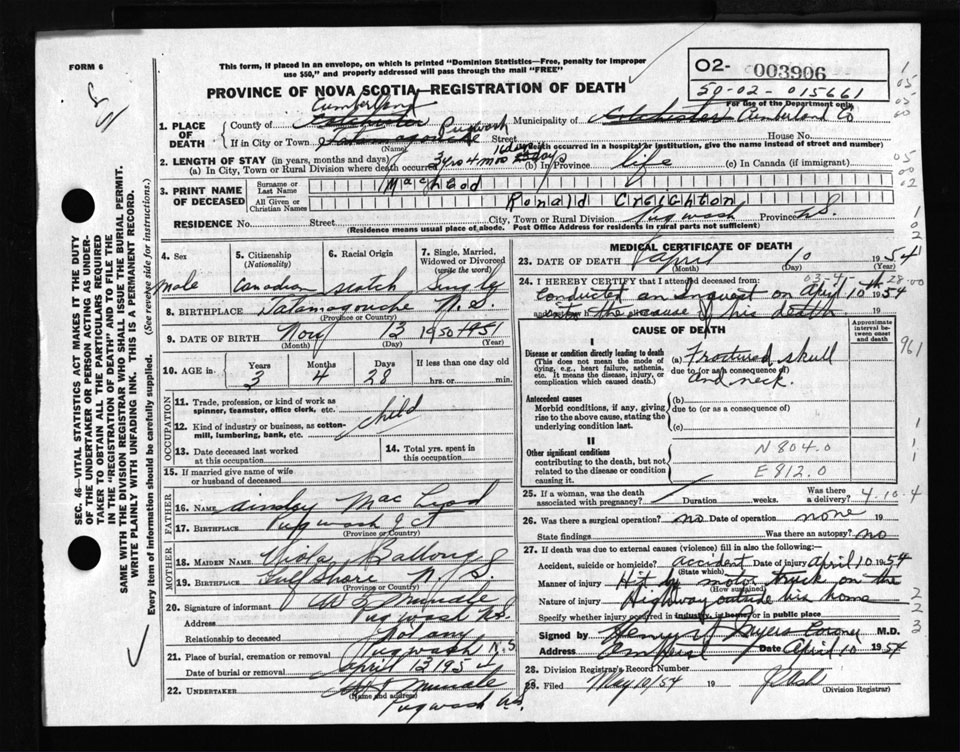 FORM 6
This form, if placed in an envelope, on which is printed "Dominion Statistics—Free, penalty for improper
use $50," and properly addressed will pass through the mail "FREE"
O2- 003906
50-02-015661
For use of the Department
PROVINCE OF NOVA SCOTIA—REGISTRATION OF DEATH
1. PLACE OF DEATH
County of Colchester Cumberland Municipality of Colchester Cumberland Co
If in City or Town Tatamagouche Pugwash Street House No.
(Name) (If death occurred in a hospital or institution, give the name instead of street and number)
2. LENGTH OF STAY (in years, months and days)
(a) In City, Town or Rural Division where death occurred 3 yrs 4 mos days (b) In Province life (c) In Canada (if immigrant)
3. PRINT NAME OF DECEASED
Surname or Last Name MacLeod
All Given or Christian Names Ronald Creighton
RESIDENCE No. Street City, Town or Rural Division Pugwash Province N.S.
(Residence means usual place of abode. Post Office Address for residents in rural parts not sufficient)
4. Sex male
5. Citizenship (Nationality) Canadian
6. Racial Origin scotch
7. Single, Married, Widowed or Divorced (write the word) Single
8. BIRTHPLACE Tatamagouche N.S.
(Province or Country)
9. DATE OF BIRTH Nov 13 1950
(Month) (Day) (Year)
10. AGE in Years 3 Months 4 Days 28 If less than one day old hrs. or min.
OCCUPATION
11. Trade, profession, or kind of work as spinner, teamster, office clerk, etc. child
12. Kind of industry or business, as cotton-mill, lumbering, bank, etc.
13. Date deceased last worked at this occupation
14. Total yrs. spent in this occupation
15. If married give name of wife or husband of deceased
FATHER
16. NAME Ainsley MacLeod
17. BIRTHPLACE Pugwash Jct
(Province or Country)
MOTHER
18. MAIDEN NAME Viola
19. BIRTHPLACE Gulf Shore N.S.
(Province or Country)
20. Signature of informant
Address Pugwash N.S.
Relationship to deceased Not any
21. Place of burial, cremation or removal Pugwash N.S.
Date of burial or removal April 12 1954
22. UNDERTAKER
(Name and address)
Pugwash N.S.
MEDICAL CERTIFICATE OF DEATH
23. DATE OF DEATH April 10 1954
(Month) (Day) (Year)
24. I HEREBY CERTIFY that I attended deceased from:
03-4- 28-00
Conducted an Inquest on April 10th 1954
into the cause of his death
CAUSE OF DEATH
Approximate interval between onset and death
I
Disease or condition directly leading to death
(This does not mean the mode of dying, e.g., heart failure, asthenia, etc. It means the disease, injury, or complication which caused death.)
(a) Fractured skull
due to (or as a consequence of)
and neck.
Antecedent causes
Morbid conditions, if any, giving rise to the above cause, stating the underlying condition last.
(b)
due to (or as a consequence of)
(c)
II
Other significant conditions
contributing to the death, but not related to the disease or condition causing it.
N 804.0
E 812.0
25. If a woman, was the death associated with pregnancy? Duration weeks. Was there a delivery? 4-10-4
26. Was there a surgical operation? no Date of operation none 19
State findings Was there an autopsy? no
27. If death was due to external causes (violence) fill in also the following:—
Accident, suicide or homicide? accident Date of injury April 10 1954
(State which)
Manner of injury Hit by motor truck on the
(How sustained)
Nature of injury Highway outside his home
Specify whether injury occurred in industry, in home or in public place
Signed by Henry Coroner M.D.
Address Amherst Date April 10 1954
28. Division Registrar's Record Number
29. Filed May 10/54 19
(Division Registrar)
SEC. 46—VITAL STATISTICS ACT MAKES IT THE DUTY
OF THE UNDERTAKER OR PERSON ACTING AS UNDER-
TAKER TO OBTAIN ALL THE PARTICULARS REQUIRED
IN THE "REGISTRATION OF DEATH" AND TO FILE THE
SAME WITH THE DIVISION REGISTRAR WHO SHALL ISSUE THE BURIAL PERMIT.
WRITE PLAINLY WITH UNFADING INK. THIS IS A PERMANENT RECORD.
Every item of information should be carefully supplied. (See reverse side for instructions.)
961